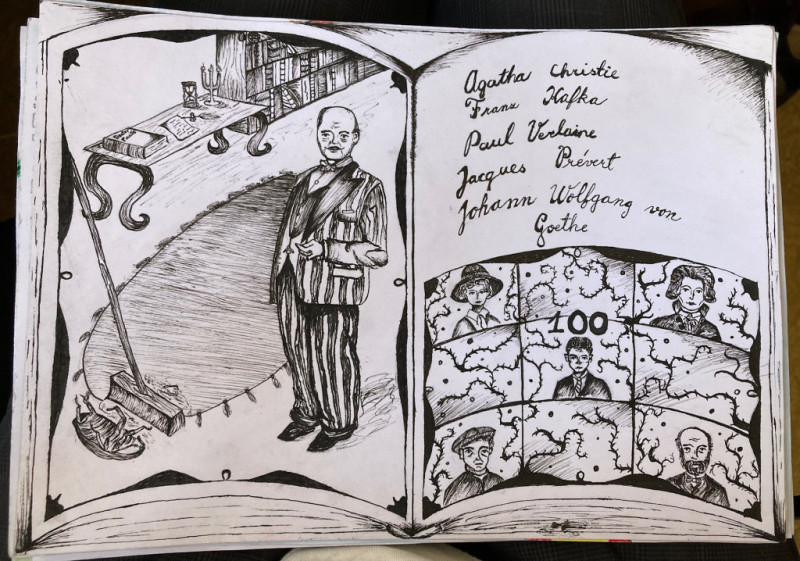 Agatha Christie
Franz Kafka
Paul Verlaine
Jacques Prévert
Johann Wolfgang von
Goethe
100